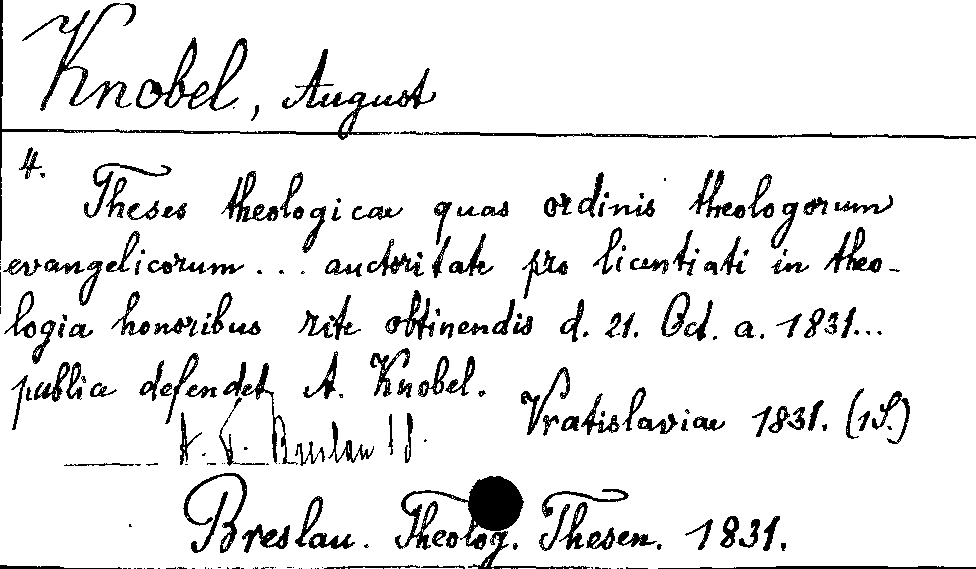 Knobel, August
4.
Theses theologicae quas ordinis theologorum
evangelicorum ... auctoritate pro licentiati in theo-
logia honoribus rite obtinendis d. 21. Oct. a. 1831...
publice defendet A. Knobel.
Vratislaviae 1831. (1S.)
Breslau
Breslau. Theolog. Thesen. 1831.